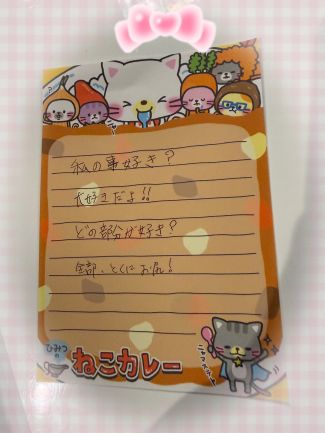 私の事好き?
大好きだよ!!
どの部分が好き?
全部、とくにお尻!
ひみつの
ねこカレー